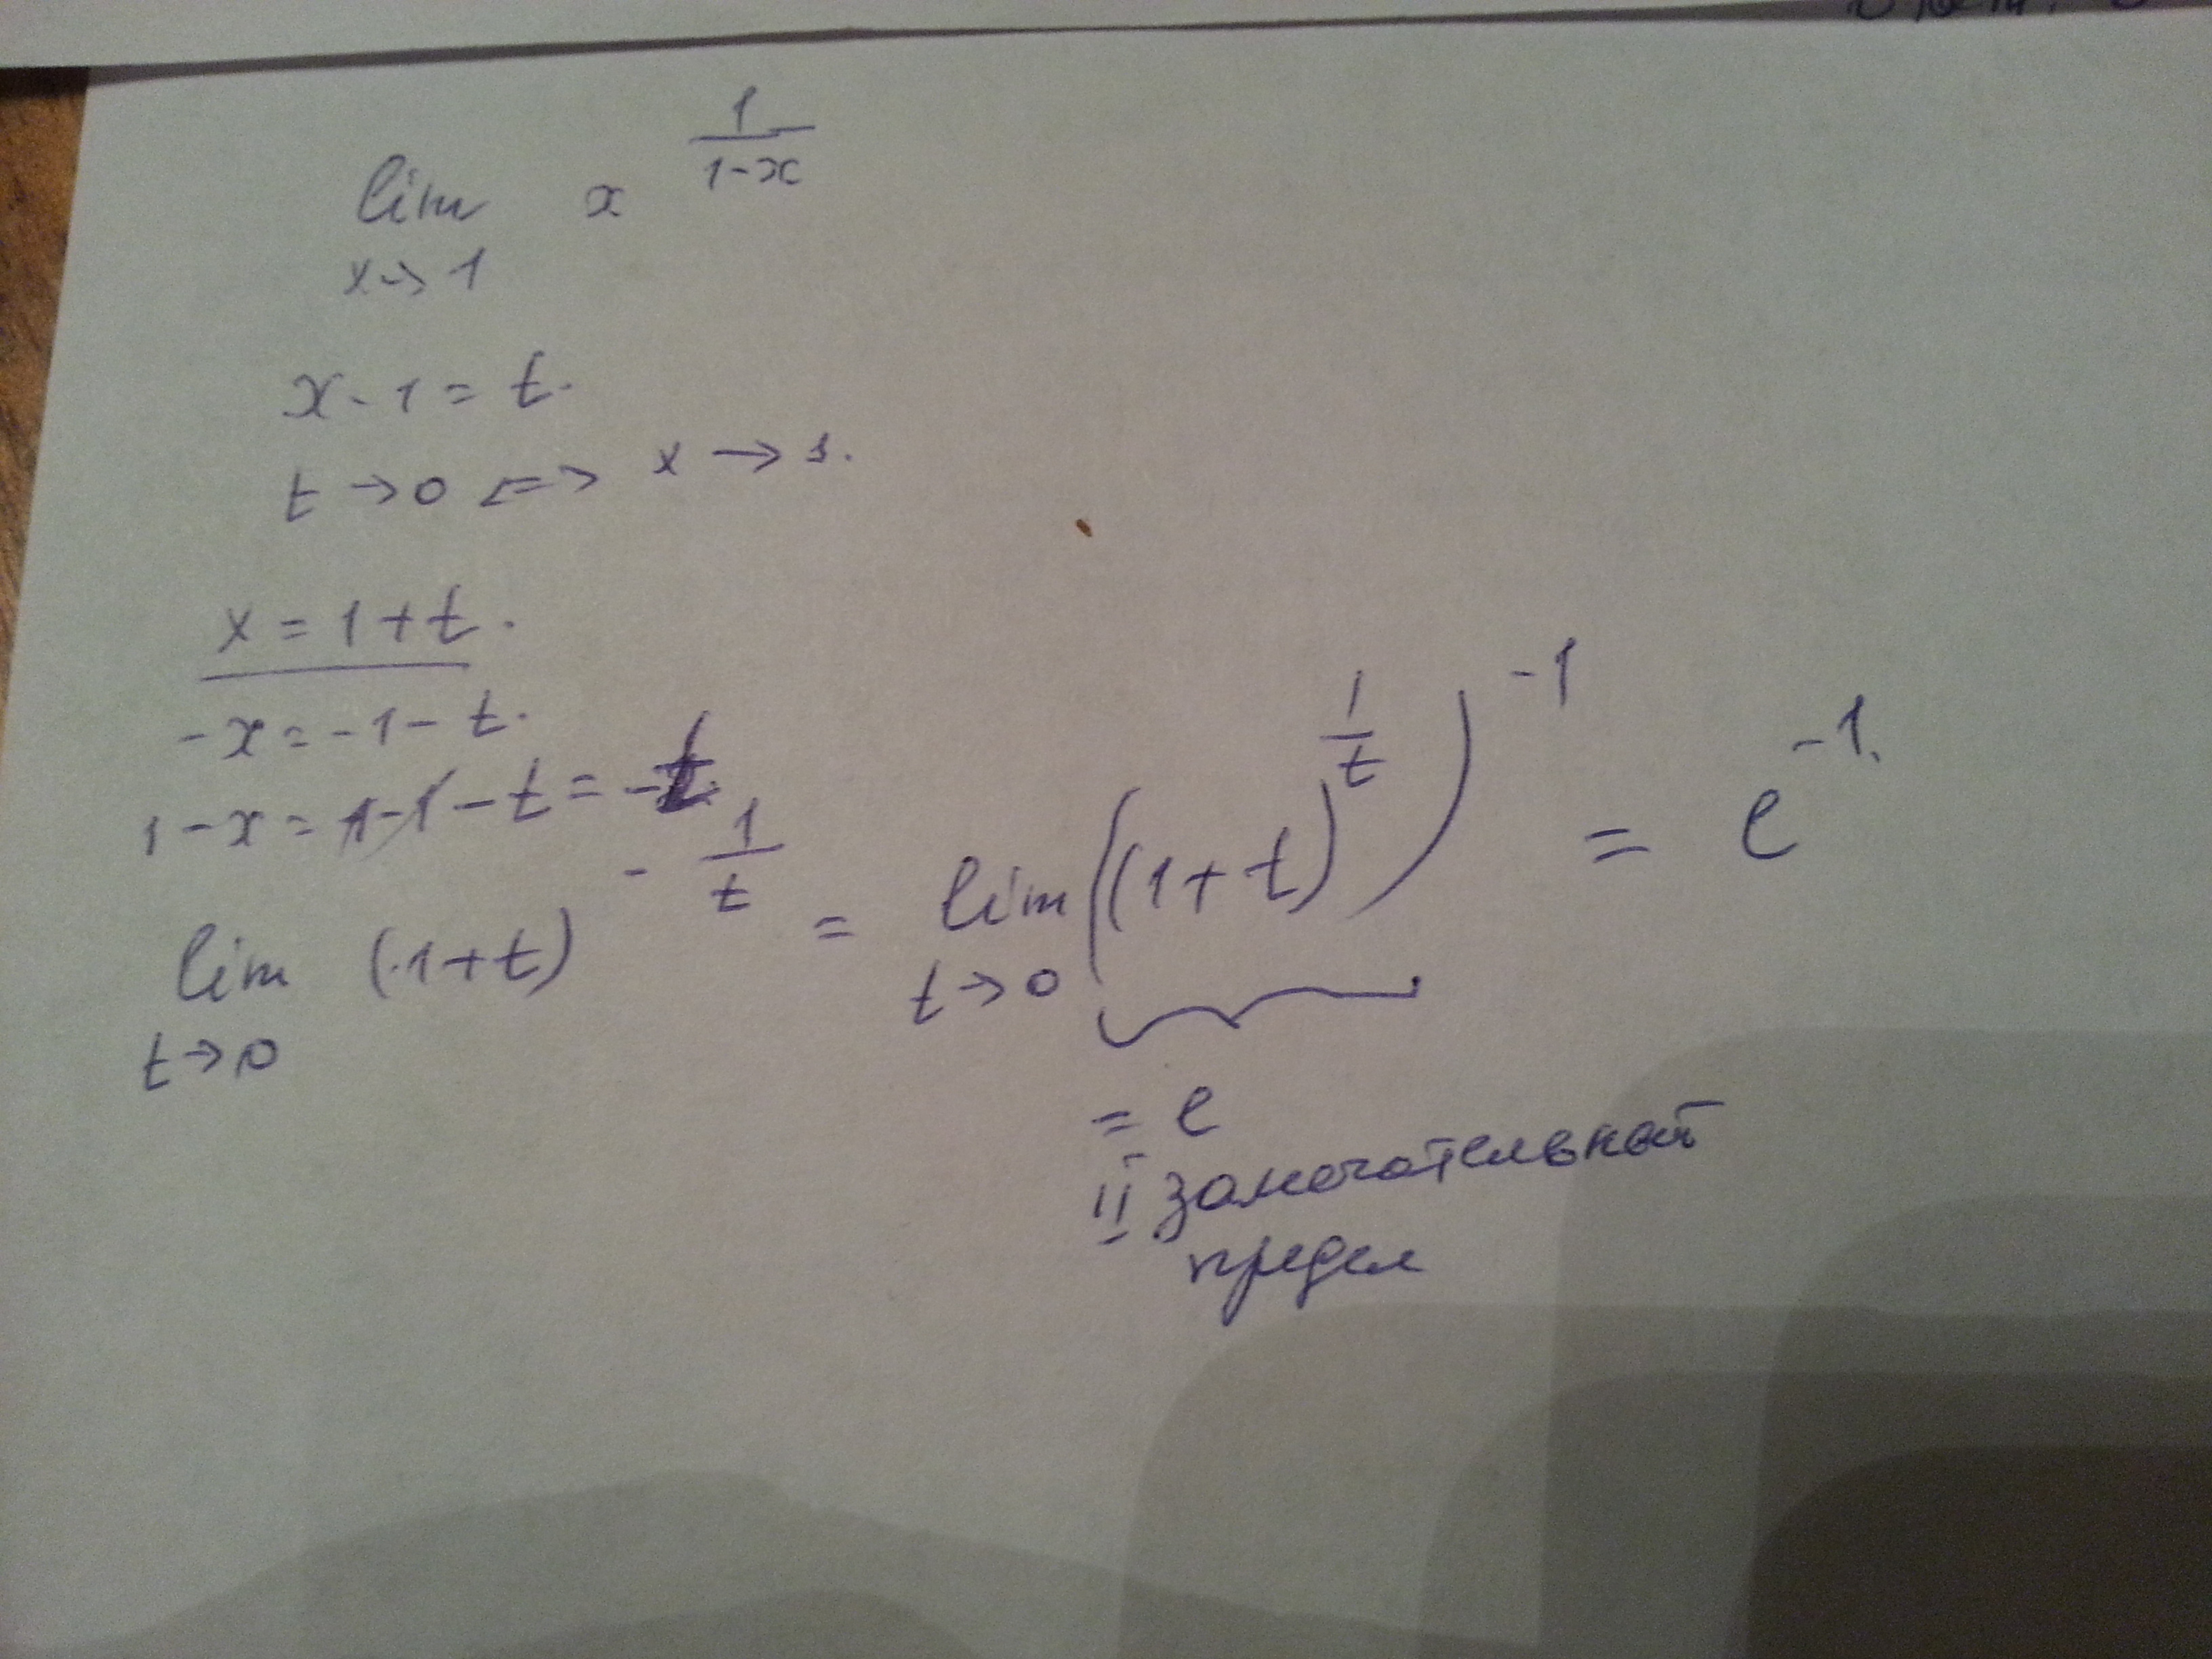 lim x^{1/(1-x)}
x→1
x-1=t.
t→0 <=> x→1.
x=1+t.
-x=-1-t.
1-x=1-1-t=-t.
lim (1+t)^{-1/t} = lim ((1+t)^{1/t})^{-1} = e^{-1}.
t→0 t→0
= e
II замечательный
предел